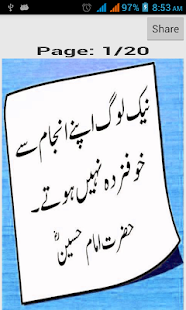 8:53 AM
Share
Page: 1/20
نیک لوگ اپنے انجام سے
خوفزدہ نہیں ہوتے۔
حضرت امام حسینؓ